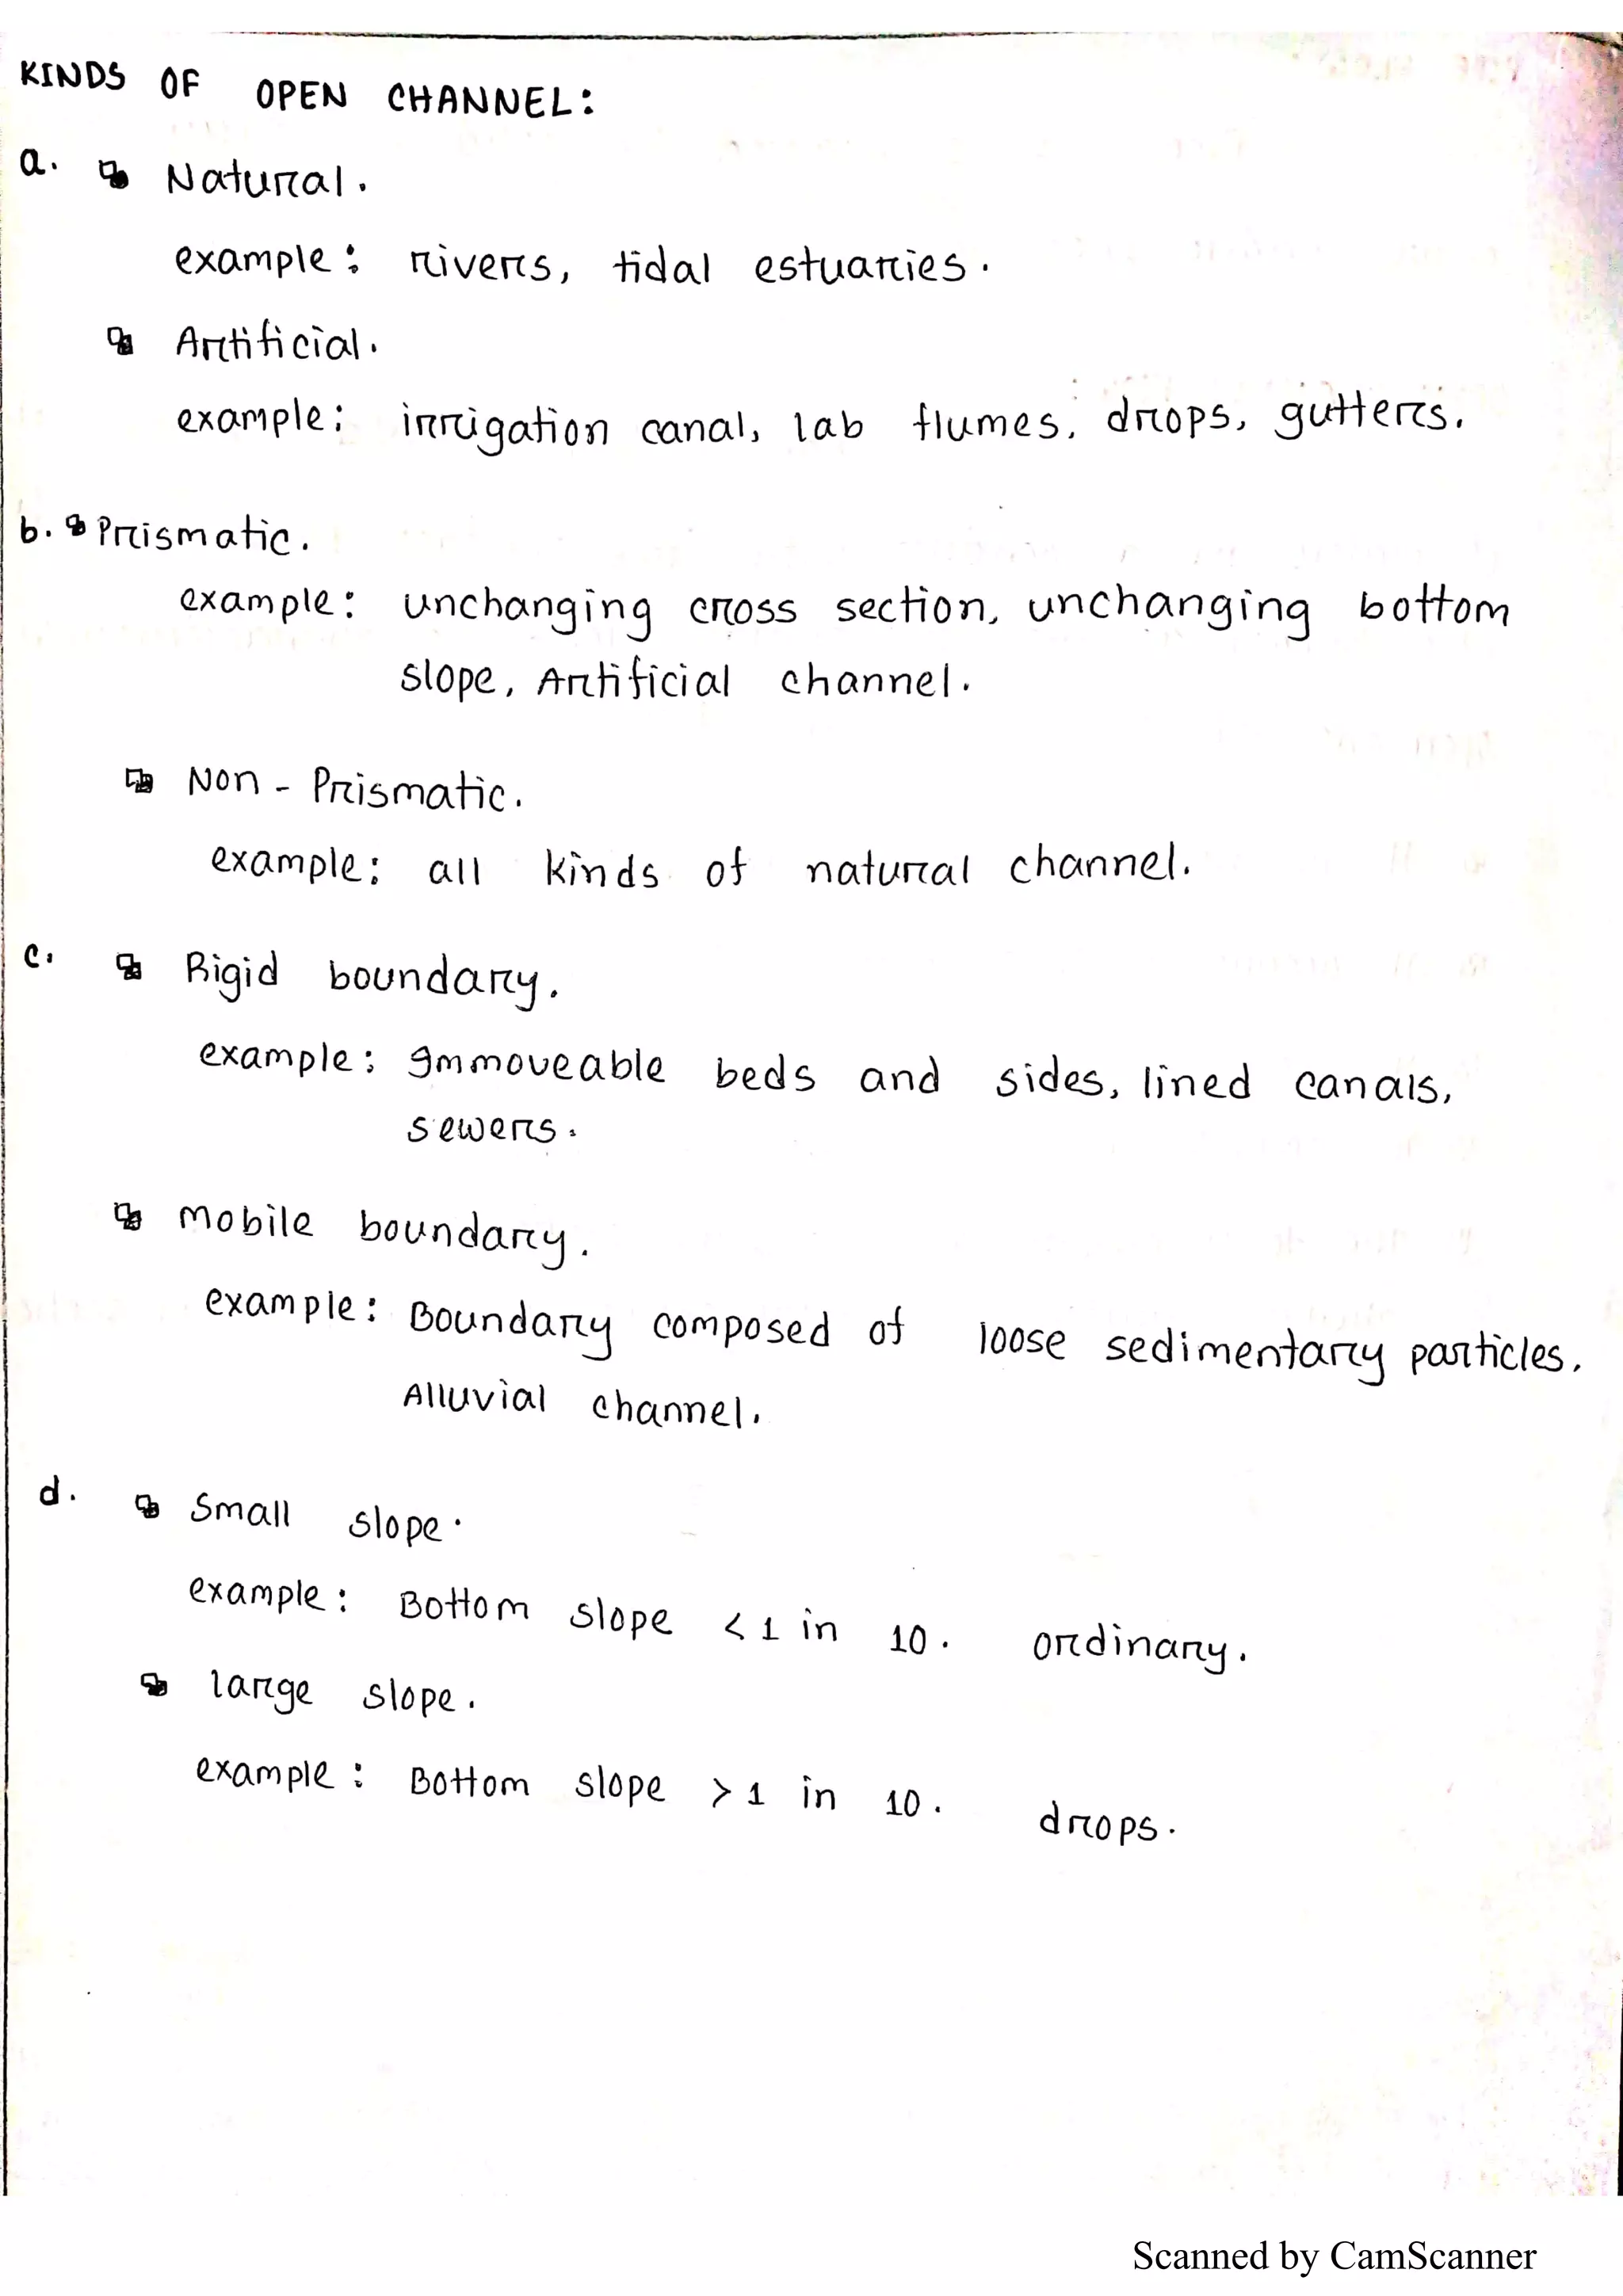 KINDS OF OPEN CHANNEL:
a. Natural.
example: rivers, tidal estuaries.
Artificial.
example: irrigation canal, lab flumes, drops, gutters.
b. Prismatic.
example: unchanging cross section, unchanging bottom
slope, Artificial channel.
Non - Prismatic.
example: all kinds of natural channel.
c. Rigid boundary.
example: Immoveable beds and sides, lined canals,
sewers.
Mobile boundary.
example: Boundary composed of loose sedimentary particles.
Alluvial channel.
d. Small slope.
example: Bottom slope < 1 in 10. ordinary.
large slope.
example: Bottom slope > 1 in 10. drops.
Scanned by CamScanner